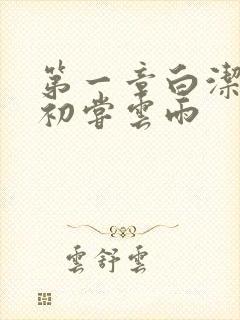 第一章白潔
初嘗雲雨
雲舒雲